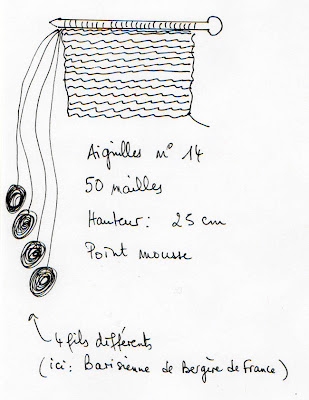 Aiguilles n° 14
50 mailles
Hauteur : 25 cm
Point mousse
4 fils différents
(ici : Barisienne de Bergère de France)